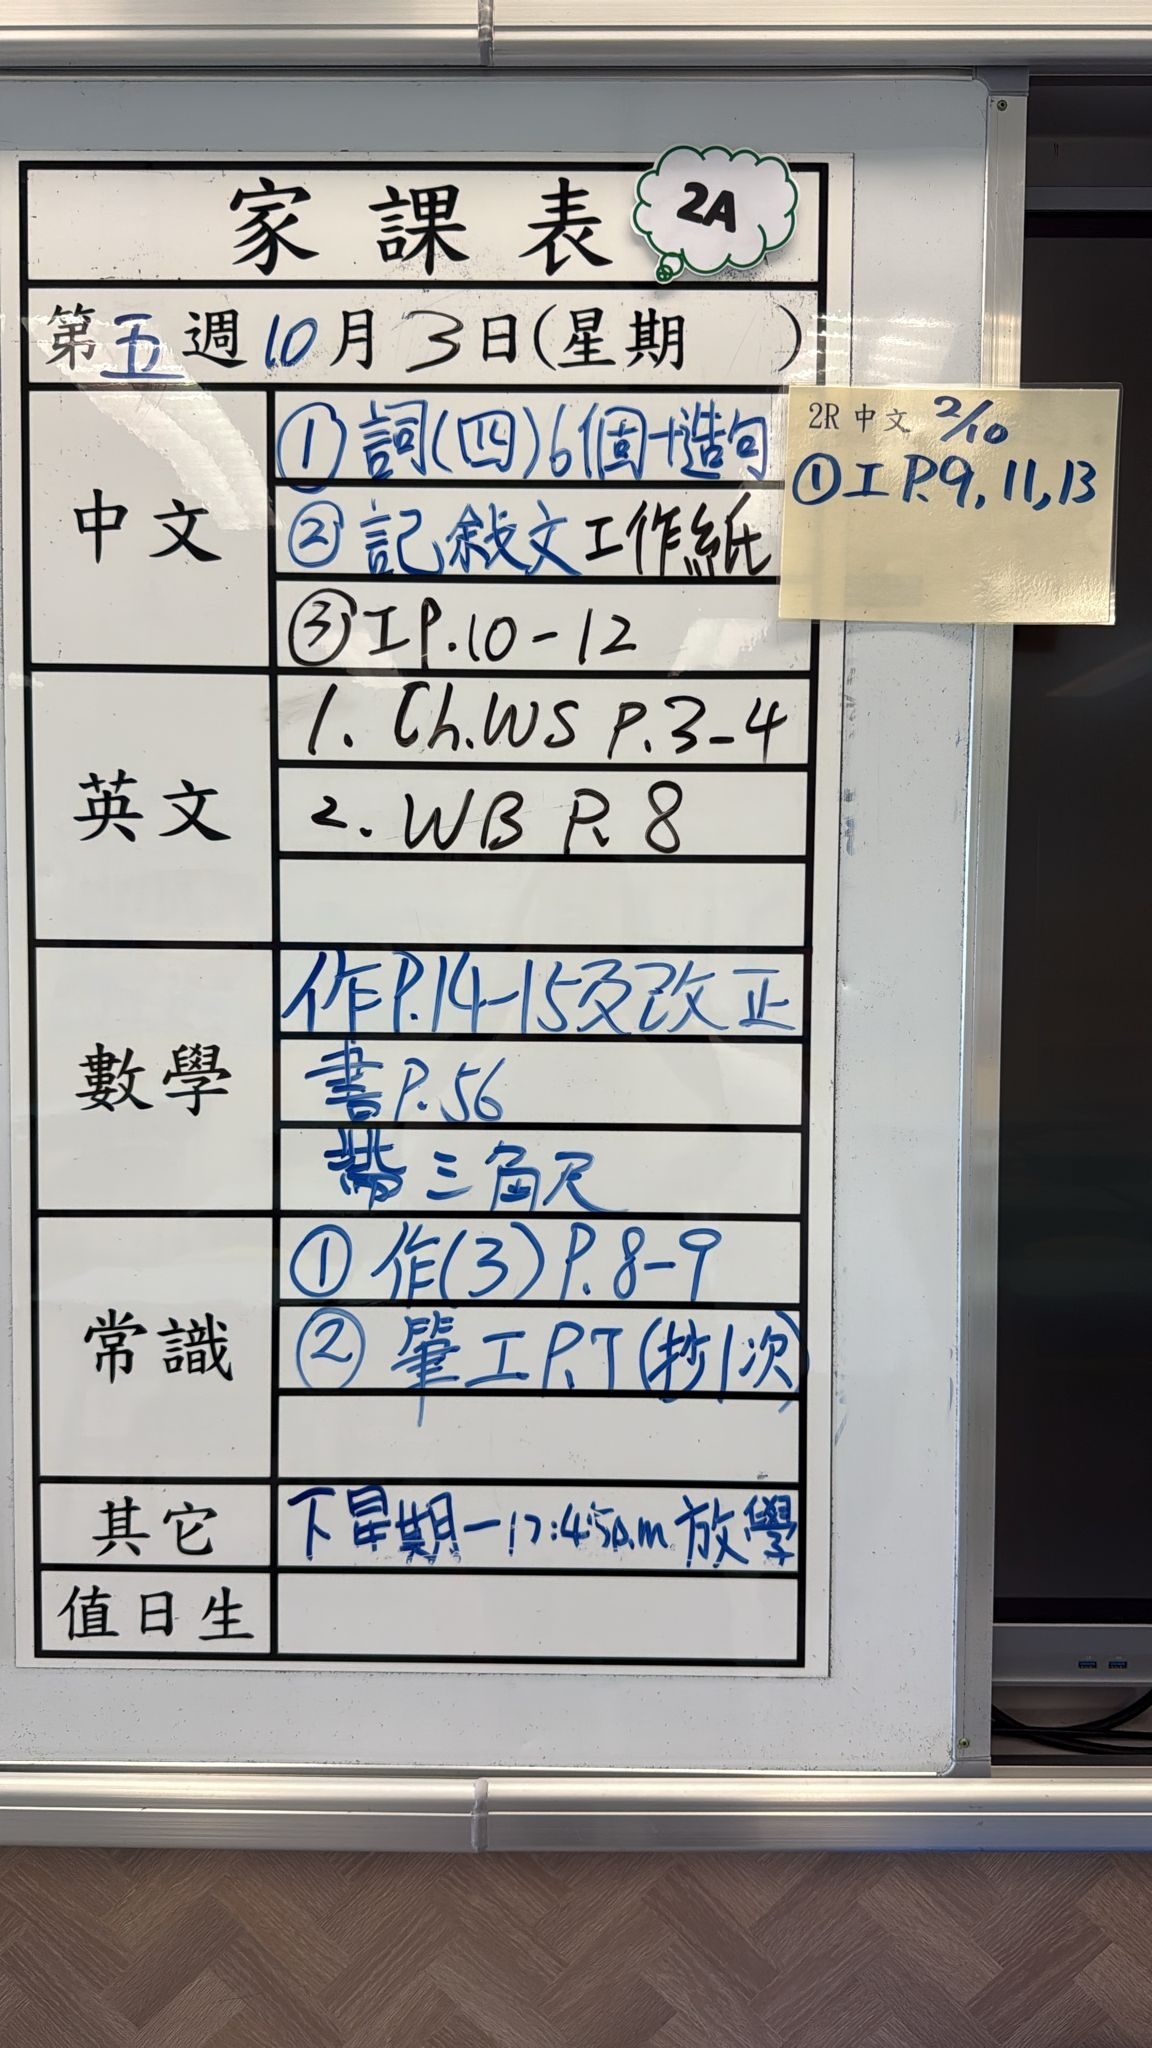 家課表
2A
第五週10月3日(星期 )
中文
①詞(四)6個+造句
②記敍文工作紙
③工P.10-12
2R 中文 2/10
①工P.9,11,13
英文
1. Ch.WS P.3-4
2. WB P.8
數學
作P.14-15及改正
書P.56
帶三角尺
常識
①作(3)P.8-9
②筆工P.7(抄1次)
其它
下星期一12:45p.m放學
值日生